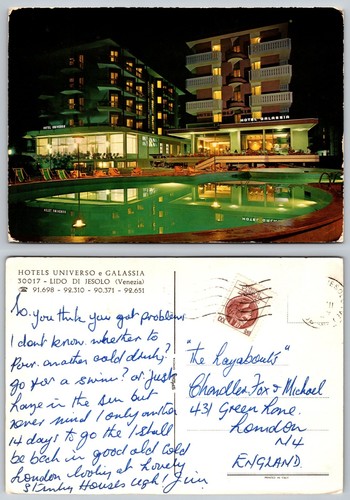 HOTEL UNIVERSO
HOTEL GALASSIA
HOTELS UNIVERSO e GALASSIA
30017 - LIDO DI JESOLO (Venezia)
☎ 91.698 - 92.310 - 90.371 - 92.651
So. you think you got problems
I dont know whether to
Pour another cold drink?
go for a swim? or just
laze in the sun but
never mind I only another
14 days to go then I shall
be back in good old Cold
London looking at lovely
Stinky Houses ugh! Jim
"The Layabouts"
Chandler Fox & Michael
431 Green Lane.
London
N4
ENGLAND.